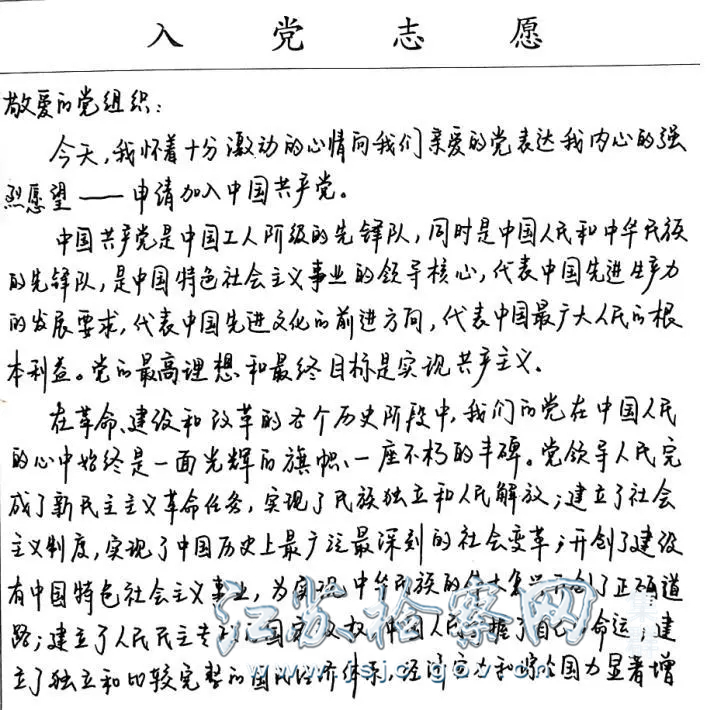 入党志愿
敬爱的党组织:
今天,我怀着十分激动的心情向我们亲爱的党表达我内心的强
烈愿望——申请加入中国共产党。
中国共产党是中国工人阶级的先锋队,同时是中国人民和中华民族
的先锋队,是中国特色社会主义事业的领导核心,代表中国先进生产力
的发展要求,代表中国先进文化的前进方向,代表中国最广大人民的根
本利益。党的最高理想和最终目标是实现共产主义。
在革命、建设和改革的各个历史阶段中,我们的党在中国人民
的心中始终是一面光辉的旗帜、一座不朽的丰碑。党领导人民完
成了新民主主义革命任务,实现了民族独立和人民解放;建立了社会
主义制度,实现了中国历史上最广泛最深刻的社会变革;开创了建设
有中国特色社会主义事业,为实现中华民族的伟大复兴开创了正确道
路;建立了人民民主专政国家政权,中国人民掌握了自己命运;建
立了独立和比较完整的国民经济体系,经济实力和综合国力显著增
江苏检察网
www.jsjc.gov.cn